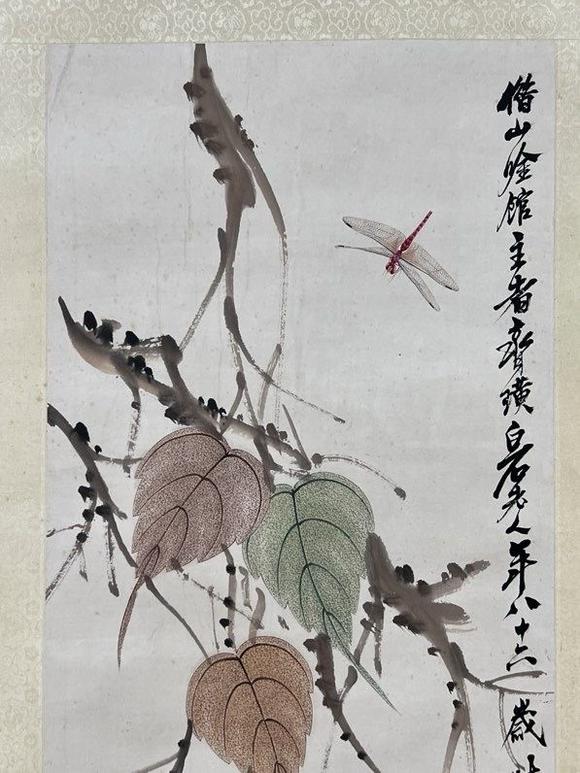 借山吟馆主者齊璜白石老人年八十六歲